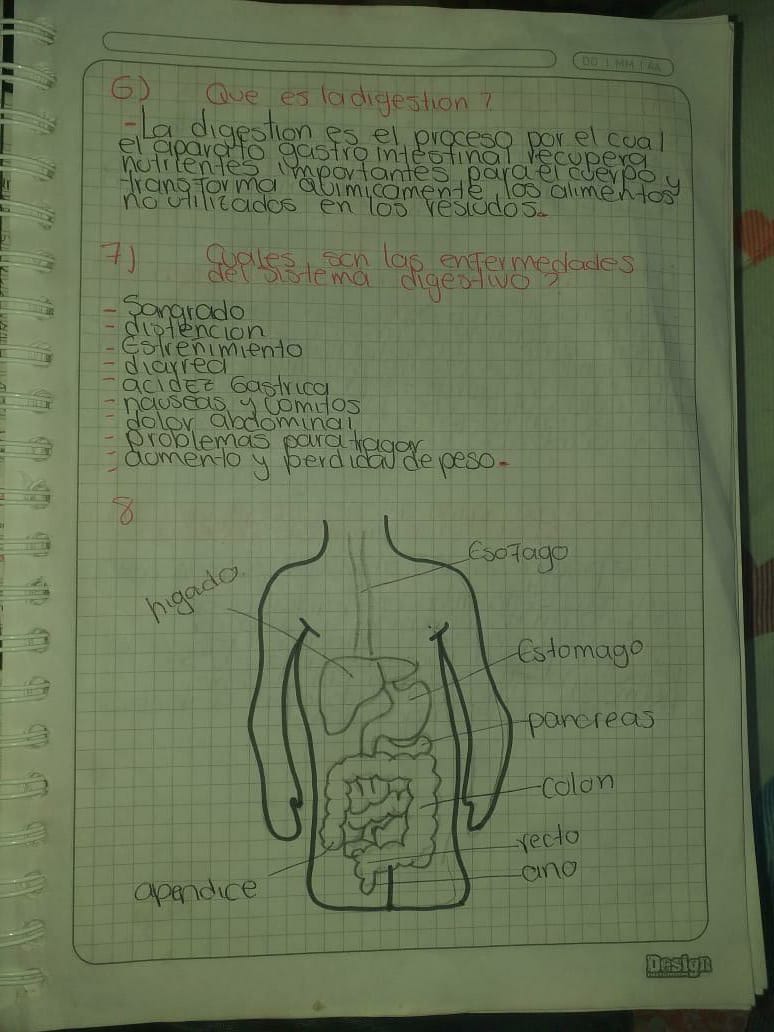 DD | MM | AA
6) Que es la digestion?
-La digestion es el proceso por el cual
el aparato gastrointestinal recupera
nutrientes importantes para el cuerpo y
transforma quimicamente los alimentos
no utilizados en los residos.
7) Cuales son las enfermedades
del sistema digestivo?
- Sangrado
- distencion
- Estrenimiento
- diarrea
- acidez Gastrica
- nauseas y Vomitos
- dolor abdominal
- problemas para tragar
- aumento y perdida de peso.
8
Esofago
higado
Estomago
pancreas
colon
recto
ano
apendice
Design